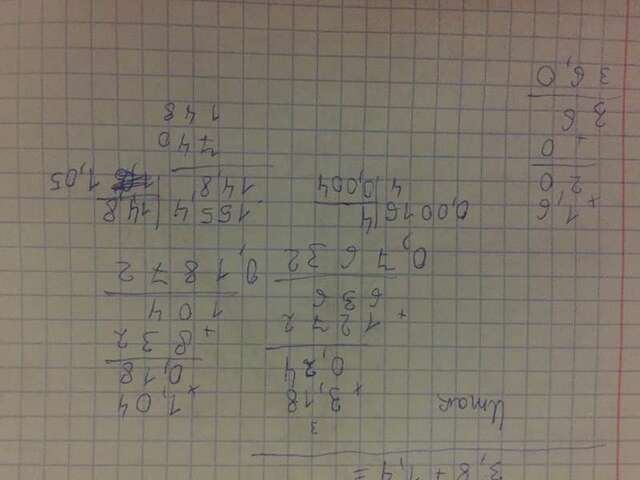 3,8 + 1,4 =
Итак
3
× 3,18
0,24
+ 1272
636
0,7632
× 1,04
0,18
+ 832
104
0,1872
× 1,6
20
+ 0
36
36,0
0,0016 | 4
4 | 0,004
- 155 4 | 14,8
14 8 1,05
740
148